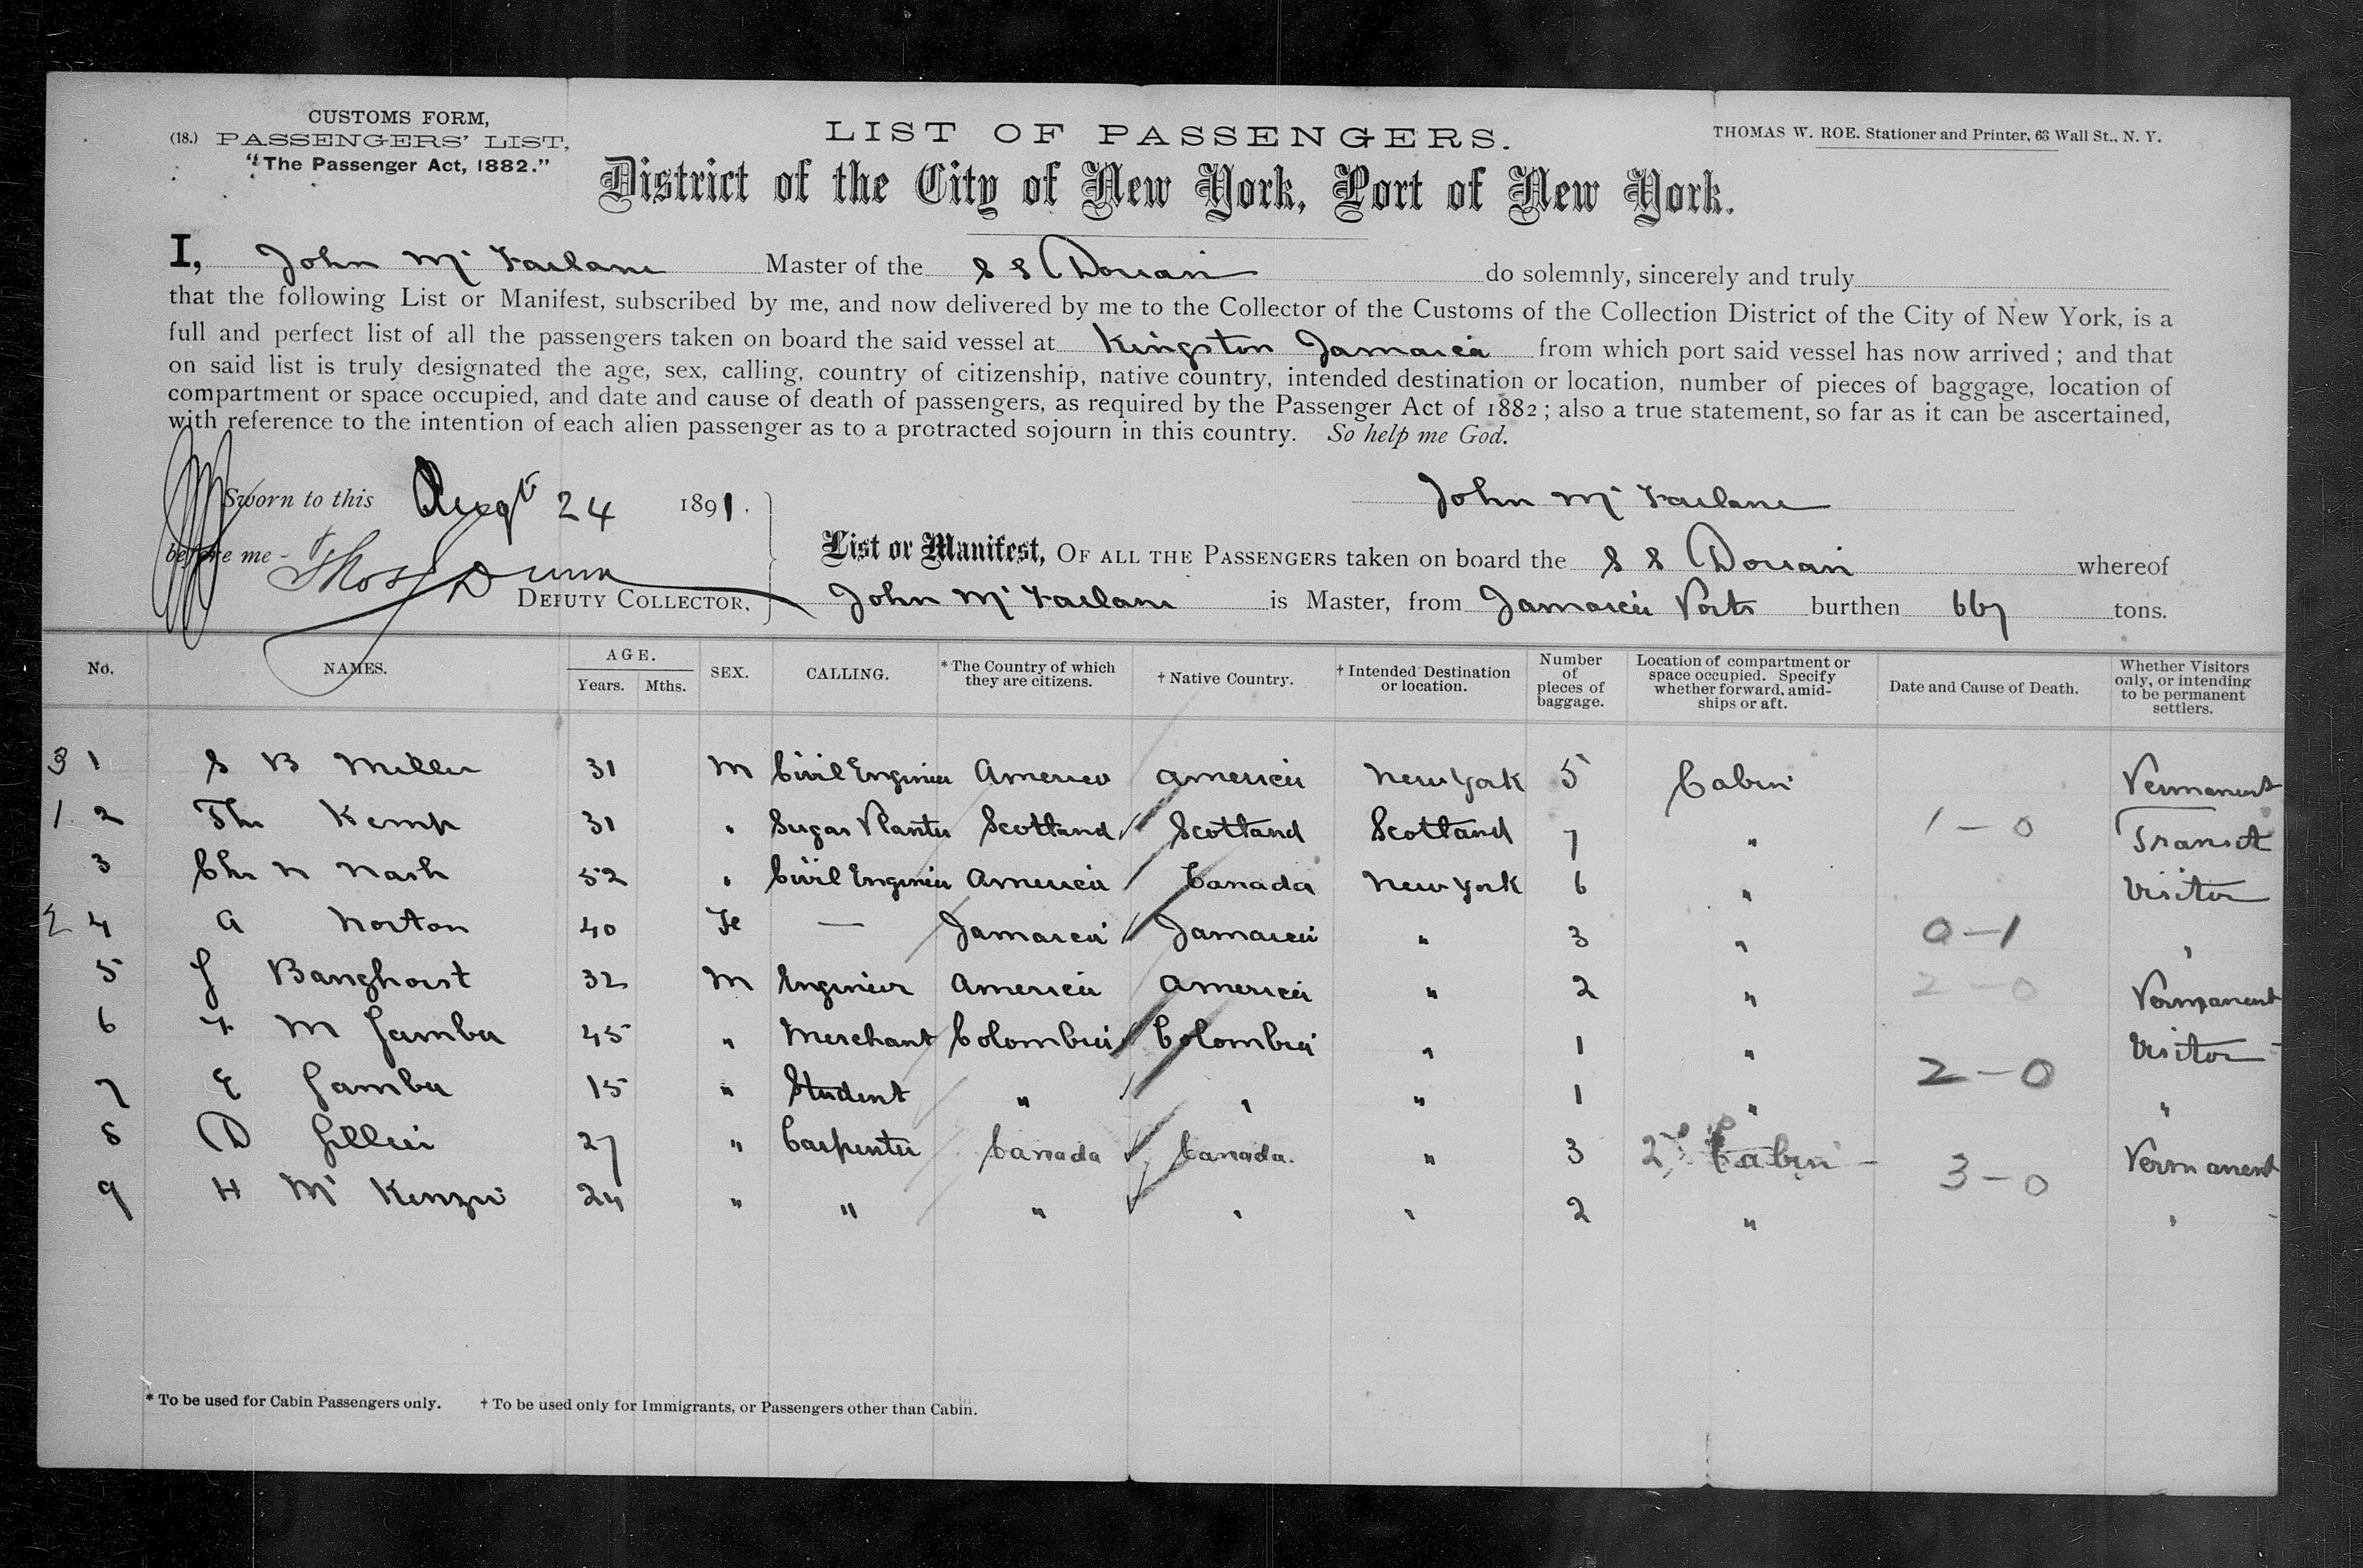 CUSTOMS FORM,
(18.) PASSENGERS' LIST,
"The Passenger Act, 1882."
LIST OF PASSENGERS.
THOMAS W. ROE. Stationer and Printer, 63 Wall St., N. Y.
District of the City of New York, Port of New York.
I, John McFarlane Master of the S S Dorian do solemnly, sincerely and truly
that the following List or Manifest, subscribed by me, and now delivered by me to the Collector of the Customs of the Collection District of the City of New York, is a
full and perfect list of all the passengers taken on board the said vessel at Kingston Jamaica from which port said vessel has now arrived; and that
on said list is truly designated the age, sex, calling, country of citizenship, native country, intended destination or location, number of pieces of baggage, location of
compartment or space occupied, and date and cause of death of passengers, as required by the Passenger Act of 1882; also a true statement, so far as it can be ascertained,
with reference to the intention of each alien passenger as to a protracted sojourn in this country. So help me God.
Sworn to this Augt 24 1891.
John McFarlane
before me - Thos Dunn
DEPUTY COLLECTOR.
List or Manifest, OF ALL THE PASSENGERS taken on board the S S Dorian whereof
John McFarlane is Master, from Jamaica Ports burthen 667 tons.
No. NAMES. AGE. Years. Mths. SEX. CALLING. * The Country of which they are citizens. † Native Country. † Intended Destination or location. Number of pieces of baggage. Location of compartment or space occupied. Specify whether forward, amidships or aft. Date and Cause of Death. Whether Visitors only, or intending to be permanent settlers.
3 1 S B Miller 31 M Civil Engineer America America New York 5 Cabin Permanent
1 2 Thos Kemp 31 " Sugar Planter Scotland Scotland Scotland 7 " 1-0 Transit
3 Chs N Nash 52 " Civil Engineer America Canada New York 6 " Visitor
2 4 A Norton 40 Fe — Jamaica Jamaica " 3 " 0-1 "
5 J Banghorst 32 M Engineer America America " 2 " 2-0 Permanent
6 F M Gamba 45 " Merchant Colombia Colombia " 1 " Visitor
7 E Gamba 15 " Student " " " 1 " 2-0 "
8 D Gillies 27 " Carpenter Canada Canada. " 3 2nd Cabin 3-0 Permanent
9 H McKenzie 24 " " " " " 2 " "
* To be used for Cabin Passengers only. † To be used only for Immigrants, or Passengers other than Cabin.